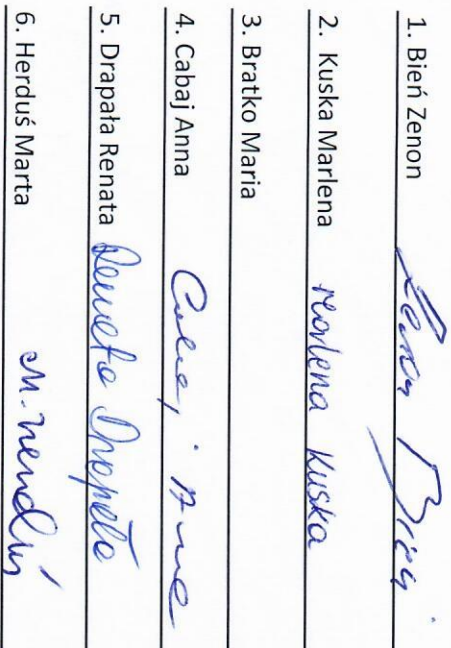 1. Bień Zenon Zenon Bień
2. Kuska Marlena Marlena Kuska
3. Bratko Maria
4. Cabaj Anna Cabaj Anna
5. Drapała Renata Renata Drapała
6. Herduś Marta M. Herduś